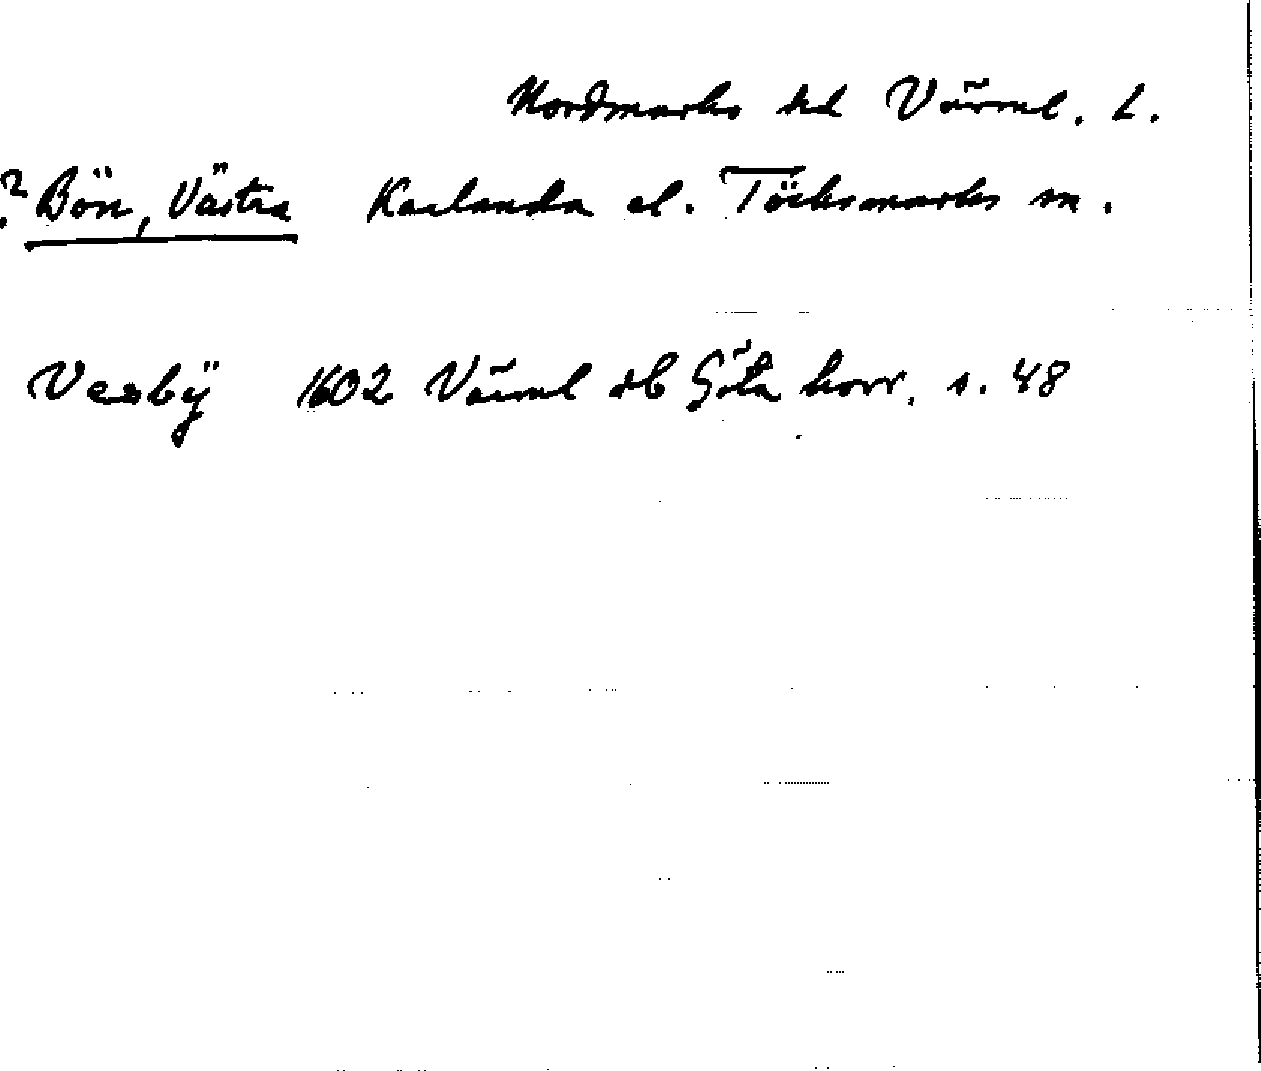 Nordmarks hd Värml. L.
? Bön, Västra Karlanda el. Töcksmarks sn.
Vesbÿ 1602 Värml sb Göta horr. s. 48